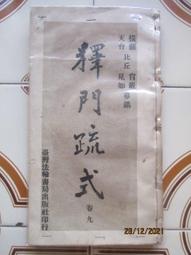 釋門疏式
卷九
臺灣法輪書局出版社印行
28/12/2021